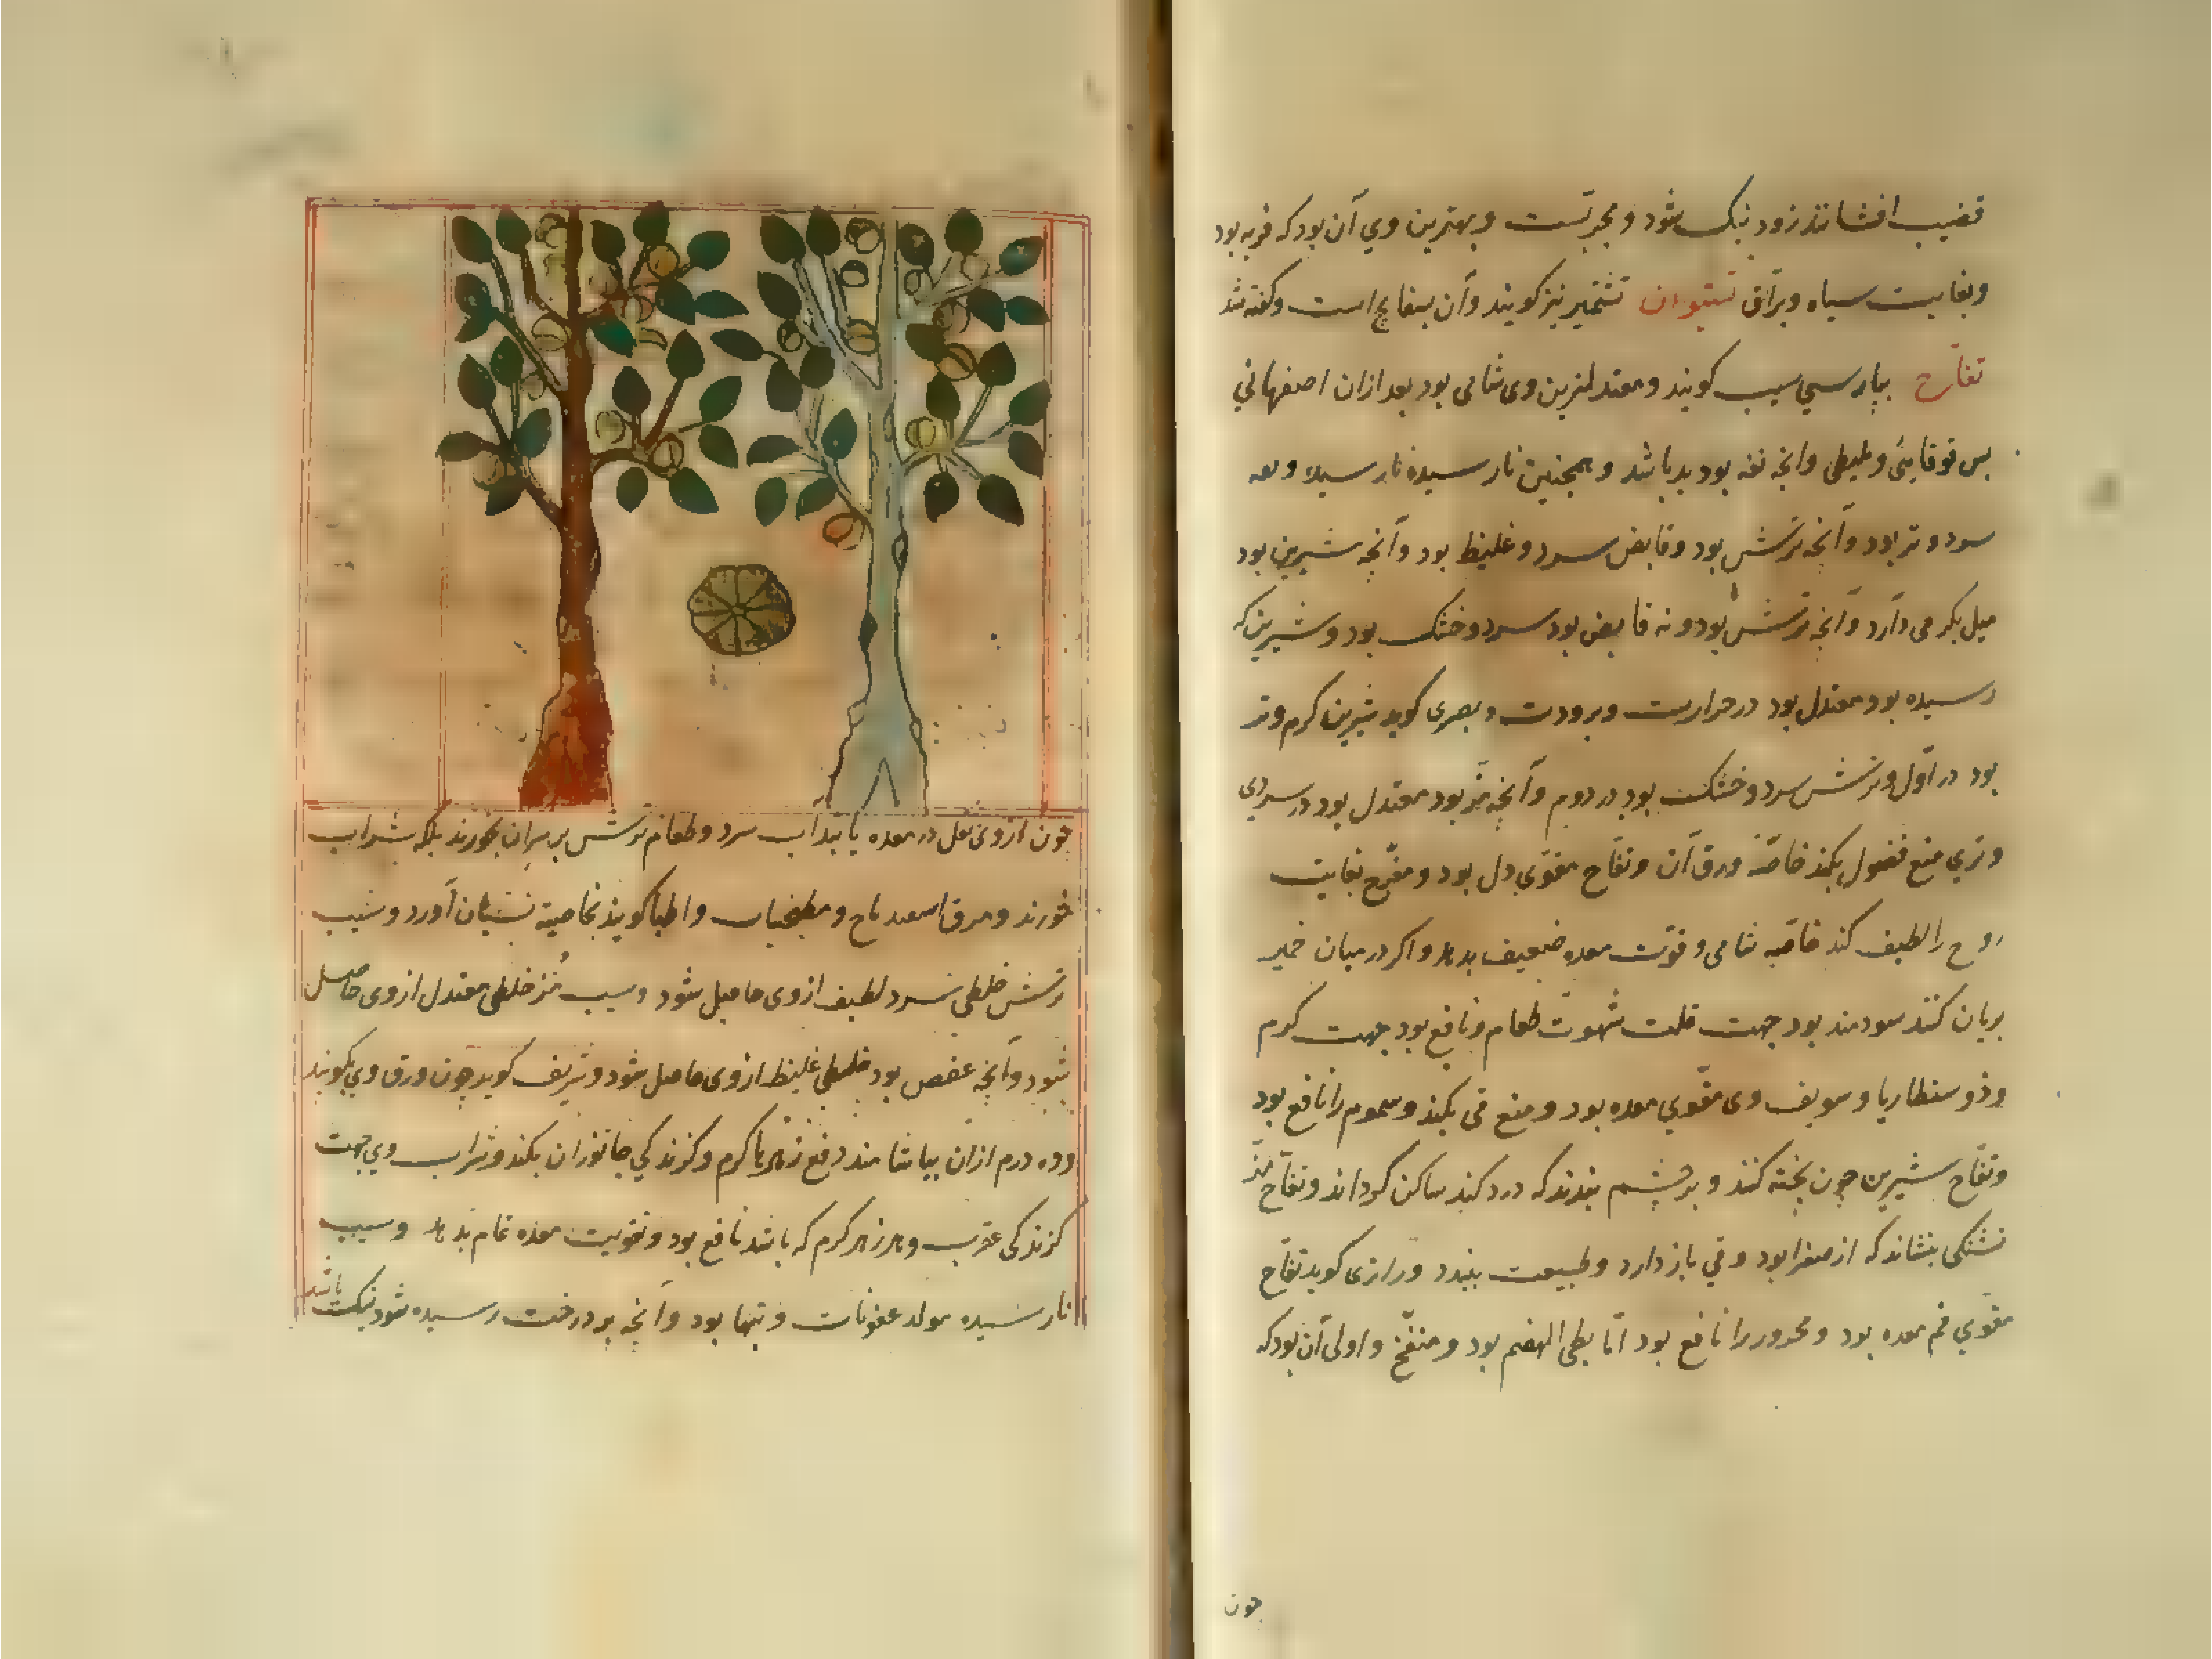 قضیب افشانند زود نیک شود و مجرّبست و بهترین وي آن بود که فربه بود
وبغایت سیاه وبرّاق تشتیوان تشتمیر نیز کویند وآن بسفایج است وکفته شد
تفّاح بپارسي سیب کویند ومعتدلترین وی شامی بود بعد ازان اصفهاني
بس قوقایئی و وانچه تفه بود بد باشد و همچنین نارسیدهٔ نارسیده وتفه
سرد و تر بود وآنچه ترش بود وقابض سرد و غلیظ بود وآنچه شیرین بود
میل بکرمی دآرد وآنچه ترش بود و نه قابض بود سرد وخشک بود وشیرین که
رسیده بود معتدل بود در حرارت وبرودت و بصری کوید شیرین کرم وتر
بود در اوّل وترش سرد وخشک بود در دوم وآنچه مُز بود معتدل بود در سردی
وتري منع فضول بکند خاصّه ورق آن وتفّاح مقوّي دل بود ومفرّح بغایت
روح را لطیف کند خاصّه شامی وقوّت معده ضعیف بدهد واکر در میان خمیر
بریان کنند سودمند بود جهت قلت شهوت طعام ونافع بود جهت کرم
وذوسنطاریا و سویف وی مقوّي معده بود ومنع قی بکند وسموم را نافع بود
وتفّاح شیرین چون بخته کنند و بر چشم بندند که درد کند ساکن کرداند وتفّاح مُز
تشنکی بنشاند که از صفرا بود وقي باز دارد وطبیعت ببندد ورازی کوید تفّاح
مقوي فم معده بود ومحرور را نافع بود امّا بطی الهضم بود ومنفّخ واولی آن بود که
چون
چون ازوی ثقل در معده یابند آب سرد وطعام ترش بر سرِ ان نخورند بلکه شراب
خورند ومرق اسفیدباج ومطجنات واطبا کویند بخاصیة نسیان آورد وسیب
ترش خلطی سرد لطیف ازوی حاصل شود وسیب مُز خلطی معتدل ازوی حاصل
شود وآنچه عفص بود خلطی غلیظ ازوی حاصل شود وشریف کوید چون ورق وي بکوبند
وده درم ازان بیاشامند دفع زهرها کرم وکزندکي جانوران بکند وشراب وي جهت
کزندکی عقرب وهر زهر کرم که باشد نافع بود وتقویت معده تمام بدهد وسیب
نارسیده مولد عفونات وتبها بود وآنچه بر درخت رسیده شود نیکت باشد